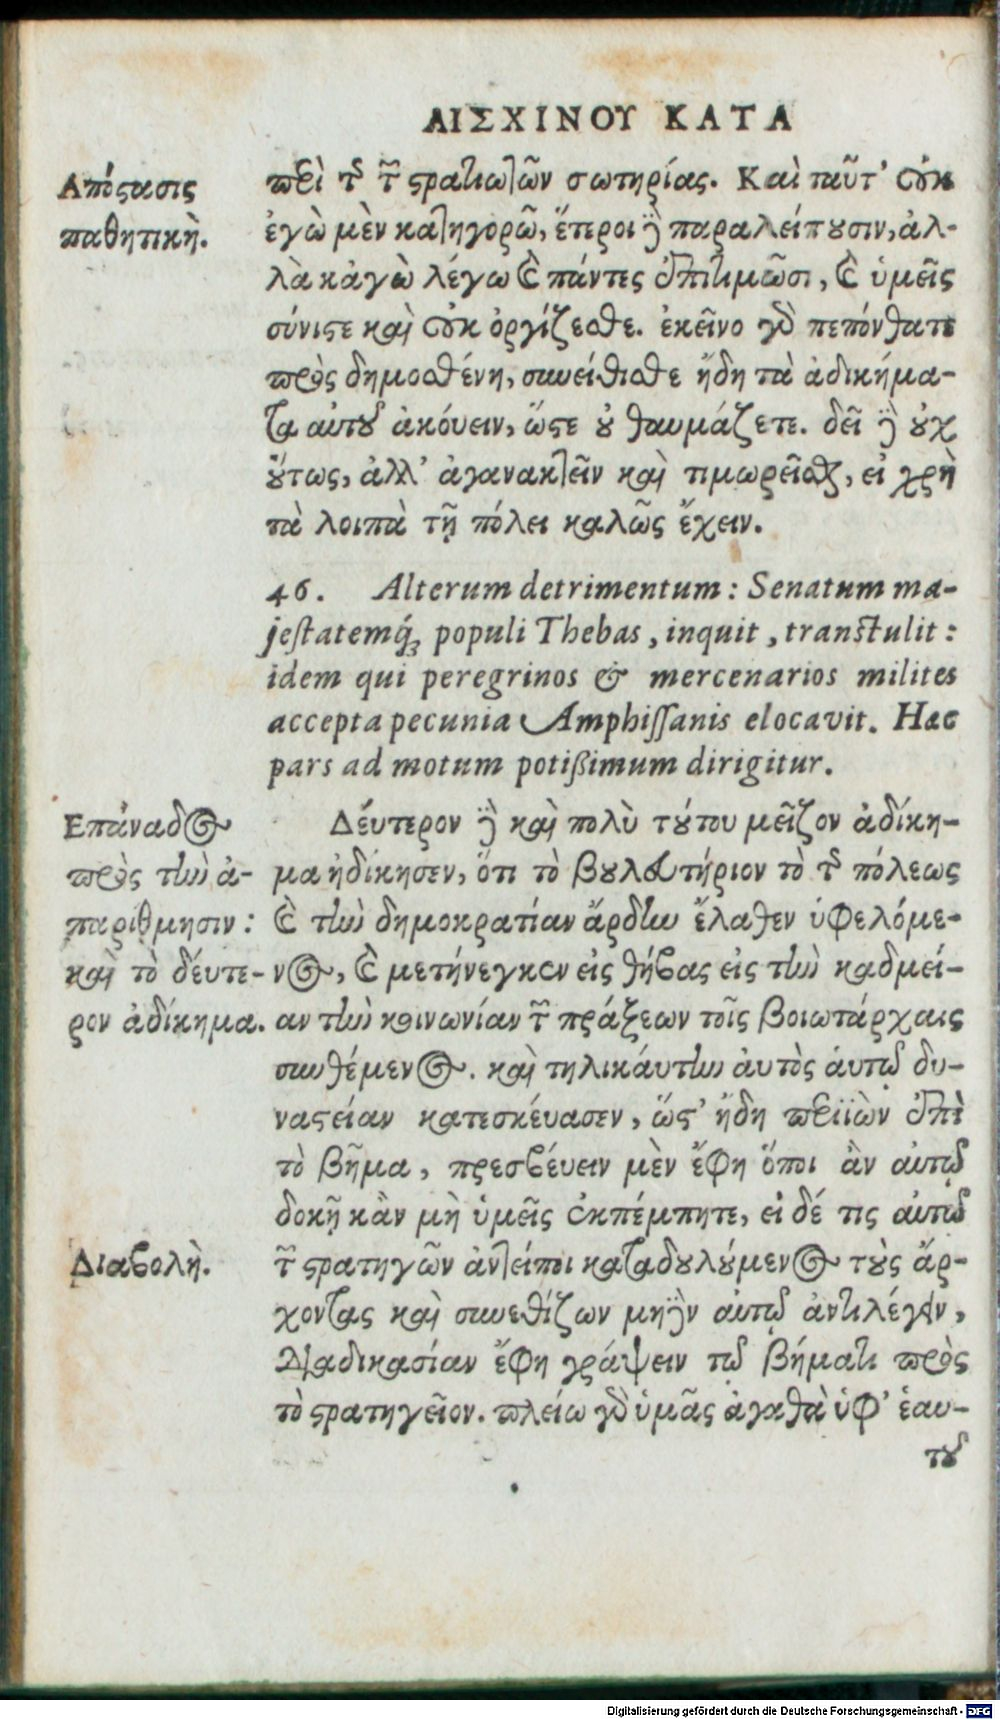 ΑΙΣΧΙΝΟΥ ΚΑΤΑ
Απόστασις
παθητική.
περὶ τῆς τῶν στρατιωτῶν σωτηρίας. Καὶ ταῦτ' οὐκ
ἐγὼ μὲν κατηγορῶ, ἕτεροι δὲ παραλείπουσιν, ἀλ-
λὰ κἀγὼ λέγω καὶ πάντες ἐπιτιμῶσι, καὶ ὑμεῖς
σύνιστε καὶ οὐκ ὀργίζεσθε. ἐκεῖνο γὰρ πεπόνθατε
πρὸς δημοσθένη, συνείθισθε ἤδη τὰ ἀδικήμα-
τα αὐτοῦ ἀκόυειν, ὥστε οὐ θαυμάζετε. δεῖ δὲ οὐχ
οὕτως, ἀλλ' ἀγανακτεῖν καὶ τιμωρεῖσθαι, εἰ χρὴ
τὰ λοιπὰ τῇ πόλει καλῶς ἔχειν.
46. Alterum detrimentum: Senatum ma-
jestatemq́; populi Thebas, inquit, transtulit:
idem qui peregrinos & mercenarios milites
accepta pecunia Amphissanis elocavit. Hæc
pars ad motum potißimum dirigitur.
Επάναδος
πρὸς τὴν ἀ-
παρίθμησιν:
καὶ τὸ δέυτε-
ρον ἀδίκημα.
Δέυτερον δὲ καὶ πολὺ τούτου μεῖζον ἀδίκη-
μα ἠδίκησεν, ὅτι τὸ βουλευτήριον τὸ τῆς πόλεως
καὶ τὴν δημοκρατίαν ἄρδην ἔλαθεν ὑφελόμε-
νος, καὶ μετήνεγκεν εἰς θήβας εἰς τὴν καδμεί-
αν τὴν κοινωνίαν τῶν πράξεων τοῖς βοιωτάρχαις
συνθέμενος. καὶ τηλικάυτην ἀυτὸς ἁυτῷ δυ-
ναστείαν κατεσκέυασεν, ὥστ' ἤδη περιϊὼν ἐπὶ
τὸ βῆμα, πρεσβέυειν μὲν ἔφη ὅποι ἂν αὐτῷ
δοκῇ κἂν μὴ ὑμεῖς ἐκπέμπητε, εἰ δέ τις αὐτῷ
Διαβολή.
τῶν στρατηγῶν ἀντείποι καταδουλούμενος τοὺς ἄρ-
χοντας καὶ συνεθίζων μηδὲν αὐτῷ ἀντιλέγειν,
Διαδικασίαν ἔφη γράψειν τῷ βήματι πρὸς
τὸ στρατηγεῖον. πλείω γὰρ ὑμᾶς ἀγαθὰ ὑφ' ἑαυ-
τοῦ
Digitalisierung gefördert durch die Deutsche Forschungsgemeinschaft - DFG